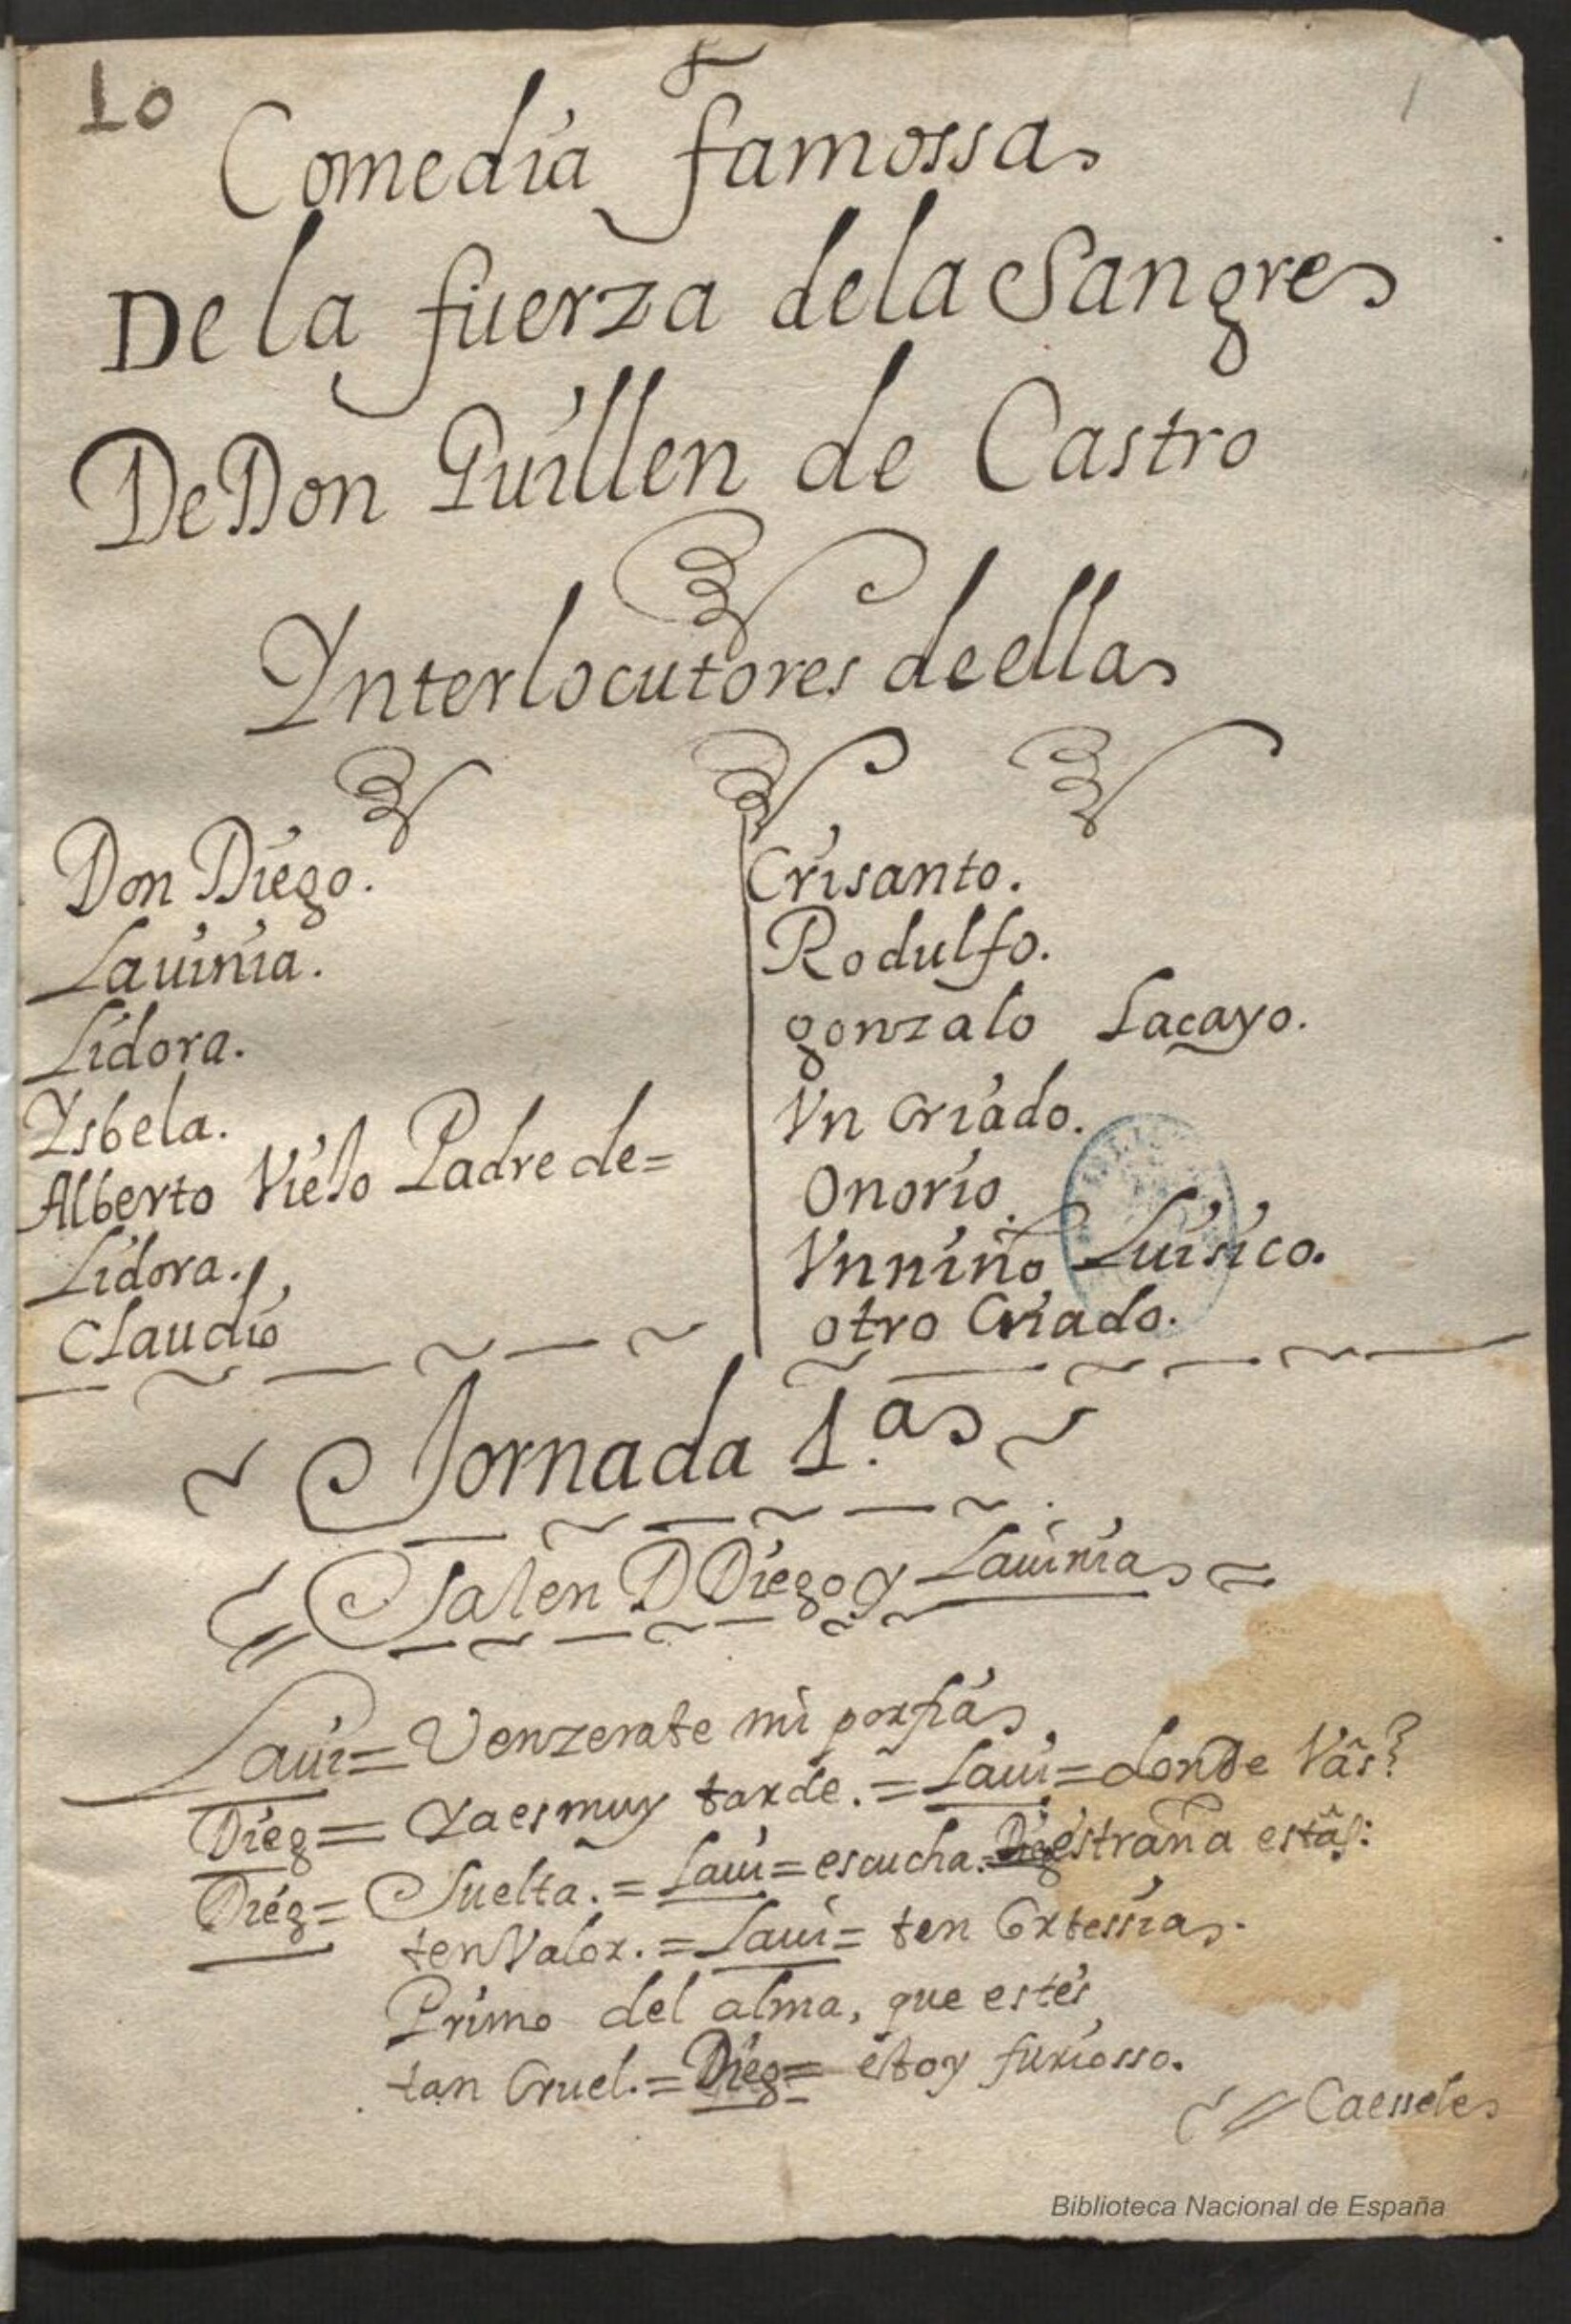 10
1
Comedia famossa
De la fuerza dela Sangre
De Don Guillen de Castro
Interlocutores de ella
Don Diego.
Lauinia.
Lidora.
Ysbela.
Alberto Viejo Padre de=
Lidora.
Claudio
Crisanto.
Rodulfo.
gonzalo Lacayo.
Vn Criado.
Onorio.
Vn niño Luisico.
otro Criado.
Jornada 1.a
Salen D Diego y Lauinia
Laui= Venzerate mi porfia
Dieg= Ya es muy tarde.= Laui= donde Vâs?
Dieg= Suelta.= Laui= escucha.= Dieg estraña estâs:
ten Valor.= Laui= ten Cortessia.
Primo del alma, que estés
tan Cruel.= Dieg= estoy furiosso.
Caessele
Biblioteca Nacional de España